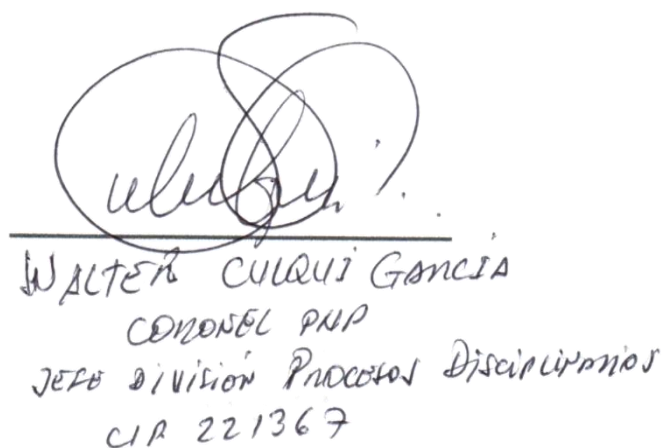 Culqui
WALTER CULQUI GARCIA
CORONEL PNP
JEFE DIVISIÓN PROCESOS DISCIPLINARIOS
CIP. 221367